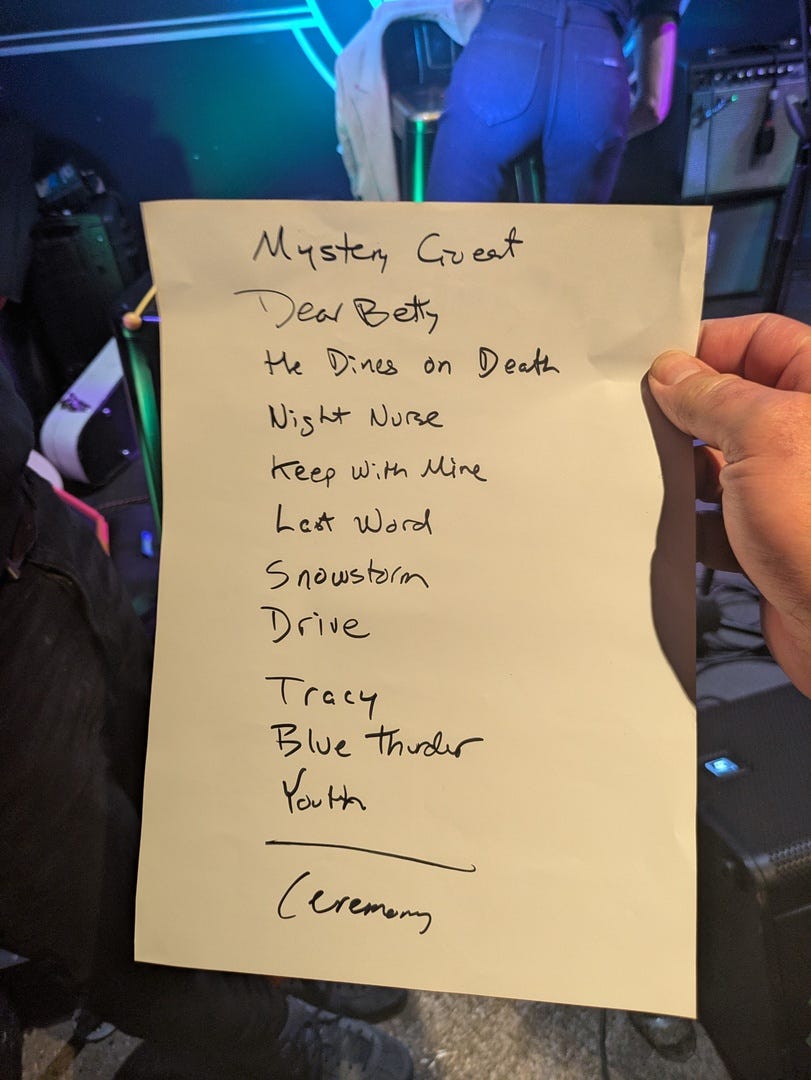 Mystery Guest
Dear Betty
He Dines on Death
Night Nurse
Keep With Mine
Last Word
Snowstorm
Drive
Tracy
Blue Thunder
Youth
Ceremony